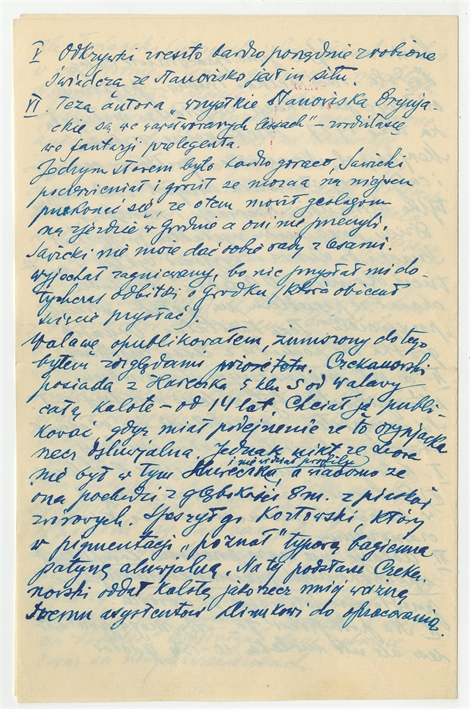 V Odkrywki zresztą bardzo porządnie zrobione
świadczą że stanowisko jest in situ.
VI. Teza autora „wszystkie stanowiska Orynja-
ckie są we warstwowanych lessach" – zrodziła się
we fantazji prelegenta.
Jednym słowem było bardzo gorąco, Sawicki
poczerwieniał i groził że można na miejscu
przekonać się, że o tem mówił geologom
na zjeździe w Grodnie a oni nie przeczyli.
Sawicki nie może dać sobie rady z lessami.
Wyjechał zagniewany, bo nic przysłał mi do-
tychczas odbitki o Gródku (którą obiecał
święcie przysłać).
Walawę opublikowałem, zmuszony do tego
byłem względami priorytetu. Czekanowski
posiada z Hareczka 5 klm S od Walawy
całą kalotę – od 14 lat. Chciał ją publi-
kować gdyż miał polecenie że to orynjacka
rzecz dyluwjalna. Jednak nikt ze Lwowa
nie był w tym Hureczku, nie widział profilu, a wiadomo że
ona pochodzi z głębokości 8 m. z piasków
żwirowych. Speszył go Kozłowski, który
w pigmentacji „poznał" typową bagienną
patynę aluwjalną. Na tej podstawie Czeka-
nowski oddał kalotę jako rzecz mniej ważną
swemu asystentowi Klimkowi do opracowania.